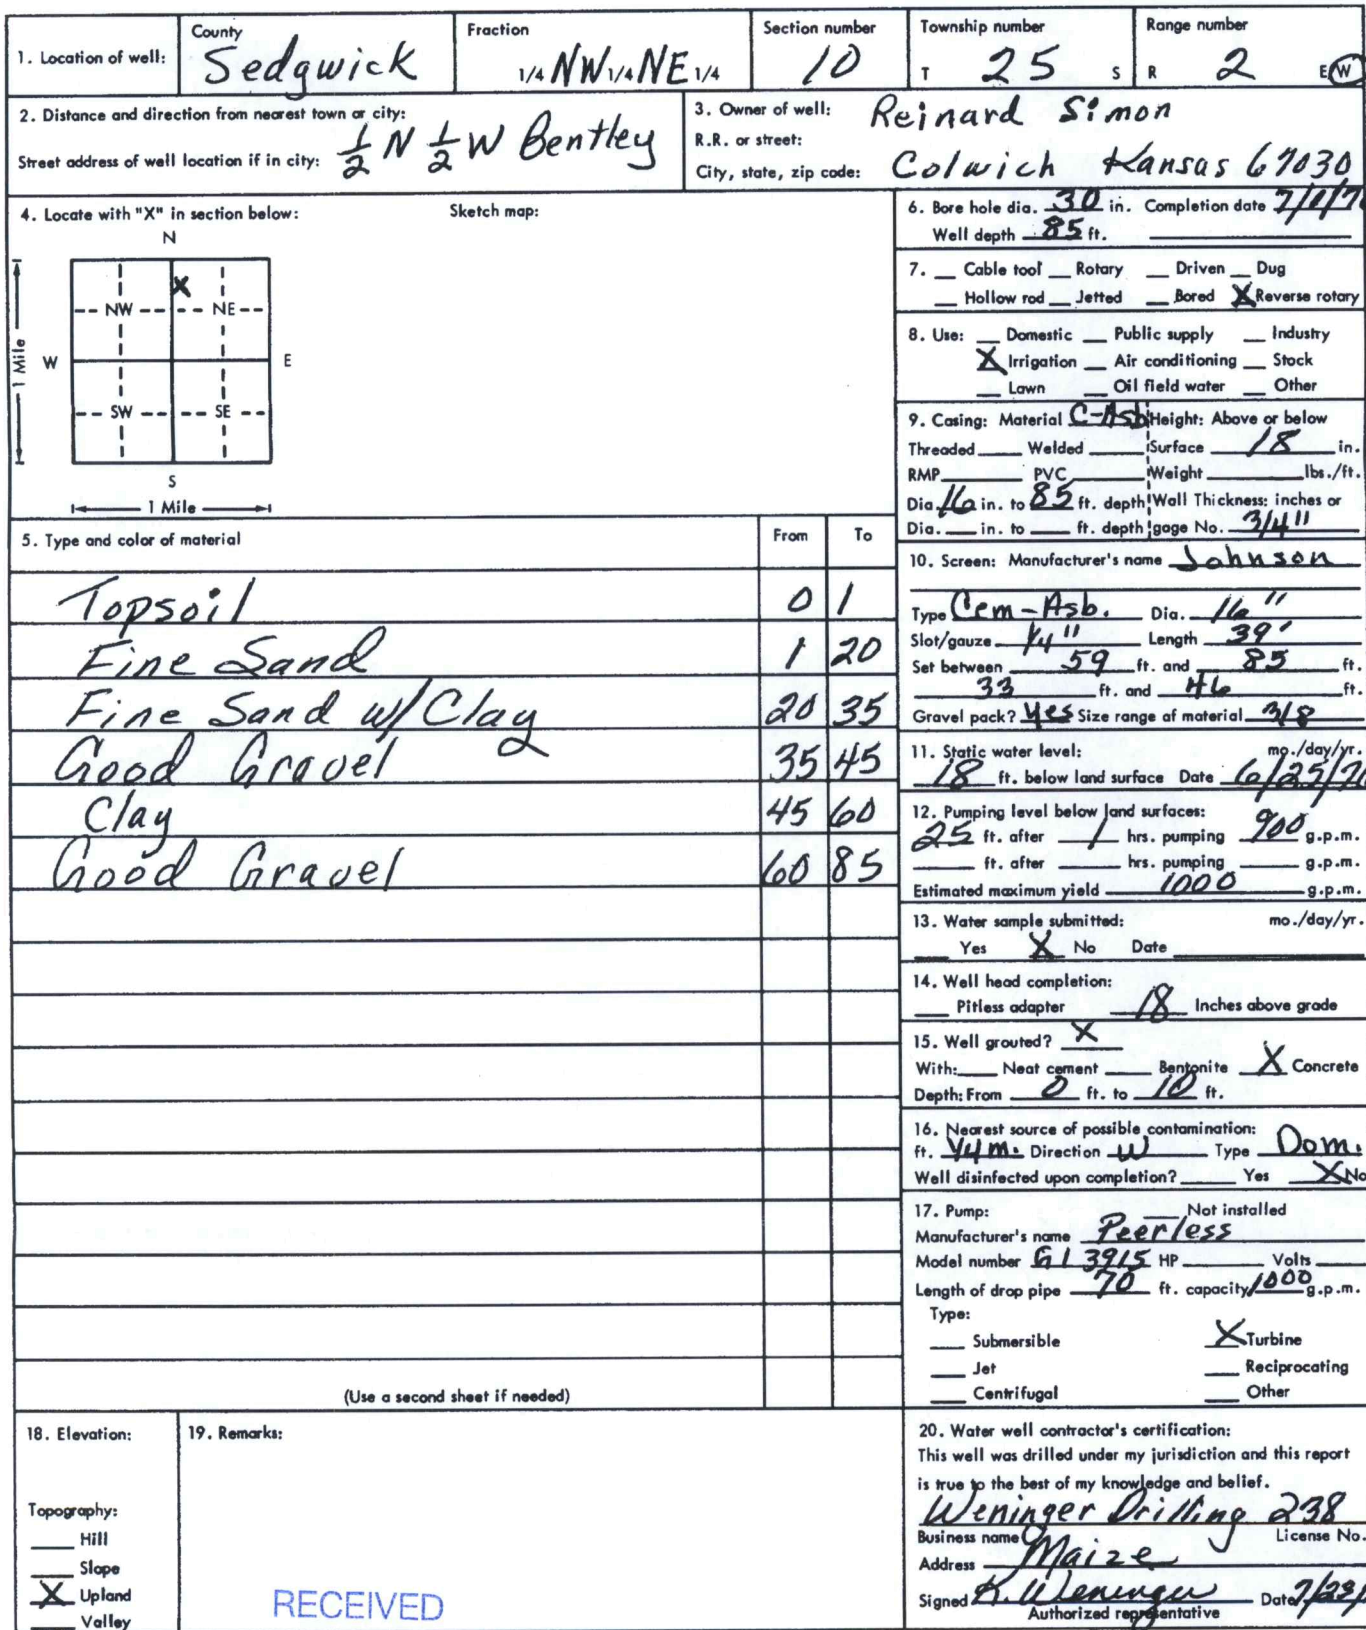 1. Location of well:
County
Sedgwick
Fraction
1/4 NW 1/4 NE 1/4
Section number
10
Township number
T 25 S
Range number
R 2 E W
2. Distance and direction from nearest town or city:
Street address of well location if in city: 1/2 N 1/2 W Bentley
3. Owner of well: Reinard Simon
R.R. or street:
City, state, zip code: Colwich Kansas 67030
4. Locate with "X" in section below: Sketch map:
N
X
NW NE
1 Mile W E
SW SE
S
1 Mile
5. Type and color of material From To
Topsoil 0 1
Fine Sand 1 20
Fine Sand w/ Clay 20 35
Good Gravel 35 45
Clay 45 60
Good Gravel 60 85
(Use a second sheet if needed)
6. Bore hole dia. 30 in. Completion date
Well depth 85 ft.
7. __ Cable tool __ Rotary __ Driven __ Dug
__ Hollow rod __ Jetted __ Bored X Reverse rotary
8. Use: __ Domestic __ Public supply __ Industry
X Irrigation __ Air conditioning __ Stock
__ Lawn __ Oil field water __ Other
9. Casing: Material C-Asb Height: Above or below
Threaded ____ Welded ____ Surface 18 in.
RMP ____ PVC ____ Weight ____ lbs./ft.
Dia. 16 in. to 85 ft. depth Wall Thickness: inches or
Dia. __ in. to __ ft. depth gage No. 3/4"
10. Screen: Manufacturer's name Johnson
Type Cem-Asb. Dia. 16"
Slot/gauze 1/4" Length 39'
Set between 59 ft. and 85 ft.
33 ft. and 46 ft.
Gravel pack? Yes Size range of material 3/8
11. Static water level: mo./day/yr.
18 ft. below land surface Date 6/25/7
12. Pumping level below land surfaces:
25 ft. after 1 hrs. pumping 900 g.p.m.
____ ft. after ____ hrs. pumping ____ g.p.m.
Estimated maximum yield 1000 g.p.m.
13. Water sample submitted: mo./day/yr.
__ Yes X No Date
14. Well head completion:
__ Pitless adapter 18 Inches above grade
15. Well grouted? X
With: __ Neat cement __ Bentonite X Concrete
Depth: From 0 ft. to 10 ft.
16. Nearest source of possible contamination:
ft. 1/4 m. Direction W Type Dom.
Well disinfected upon completion? ____ Yes X No
17. Pump: __ Not installed
Manufacturer's name Peerless
Model number G1 3915 HP ____ Volts ____
Length of drop pipe 70 ft. capacity 1000 g.p.m.
Type:
__ Submersible X Turbine
__ Jet __ Reciprocating
__ Centrifugal __ Other
18. Elevation:
Topography:
__ Hill
__ Slope
X Upland
__ Valley
19. Remarks:
RECEIVED
20. Water well contractor's certification:
This well was drilled under my jurisdiction and this report
is true to the best of my knowledge and belief.
Weninger Drilling 238
Business name License No.
Address Maize
Signed K. Weninger Date 7/23/
Authorized representative